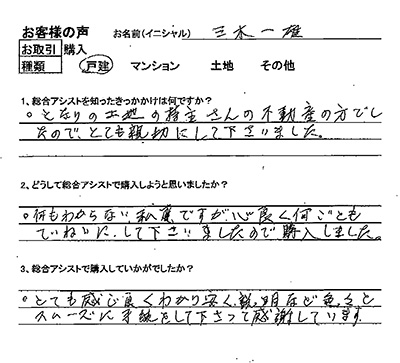 お客様の声 お名前(イニシャル) 三木一雄
お取引 購入
種類 戸建 マンション 土地 その他
1、総合アシストを知ったきっかかけは何ですか?
。となりの土地の持主さんの不動産の方でし
たので、とても親切にして下さいました。
2、どうして総合アシストで購入しようと思いましたか?
。何もわからない私達ですが、心良く何ごとも
ていねいに、して下さいましたので購入しました。
3、総合アシストで購入していかがでしたか?
。とても感じ良くわかり安く、説明など色々と
スムーズに手続をして下さって感謝しています。